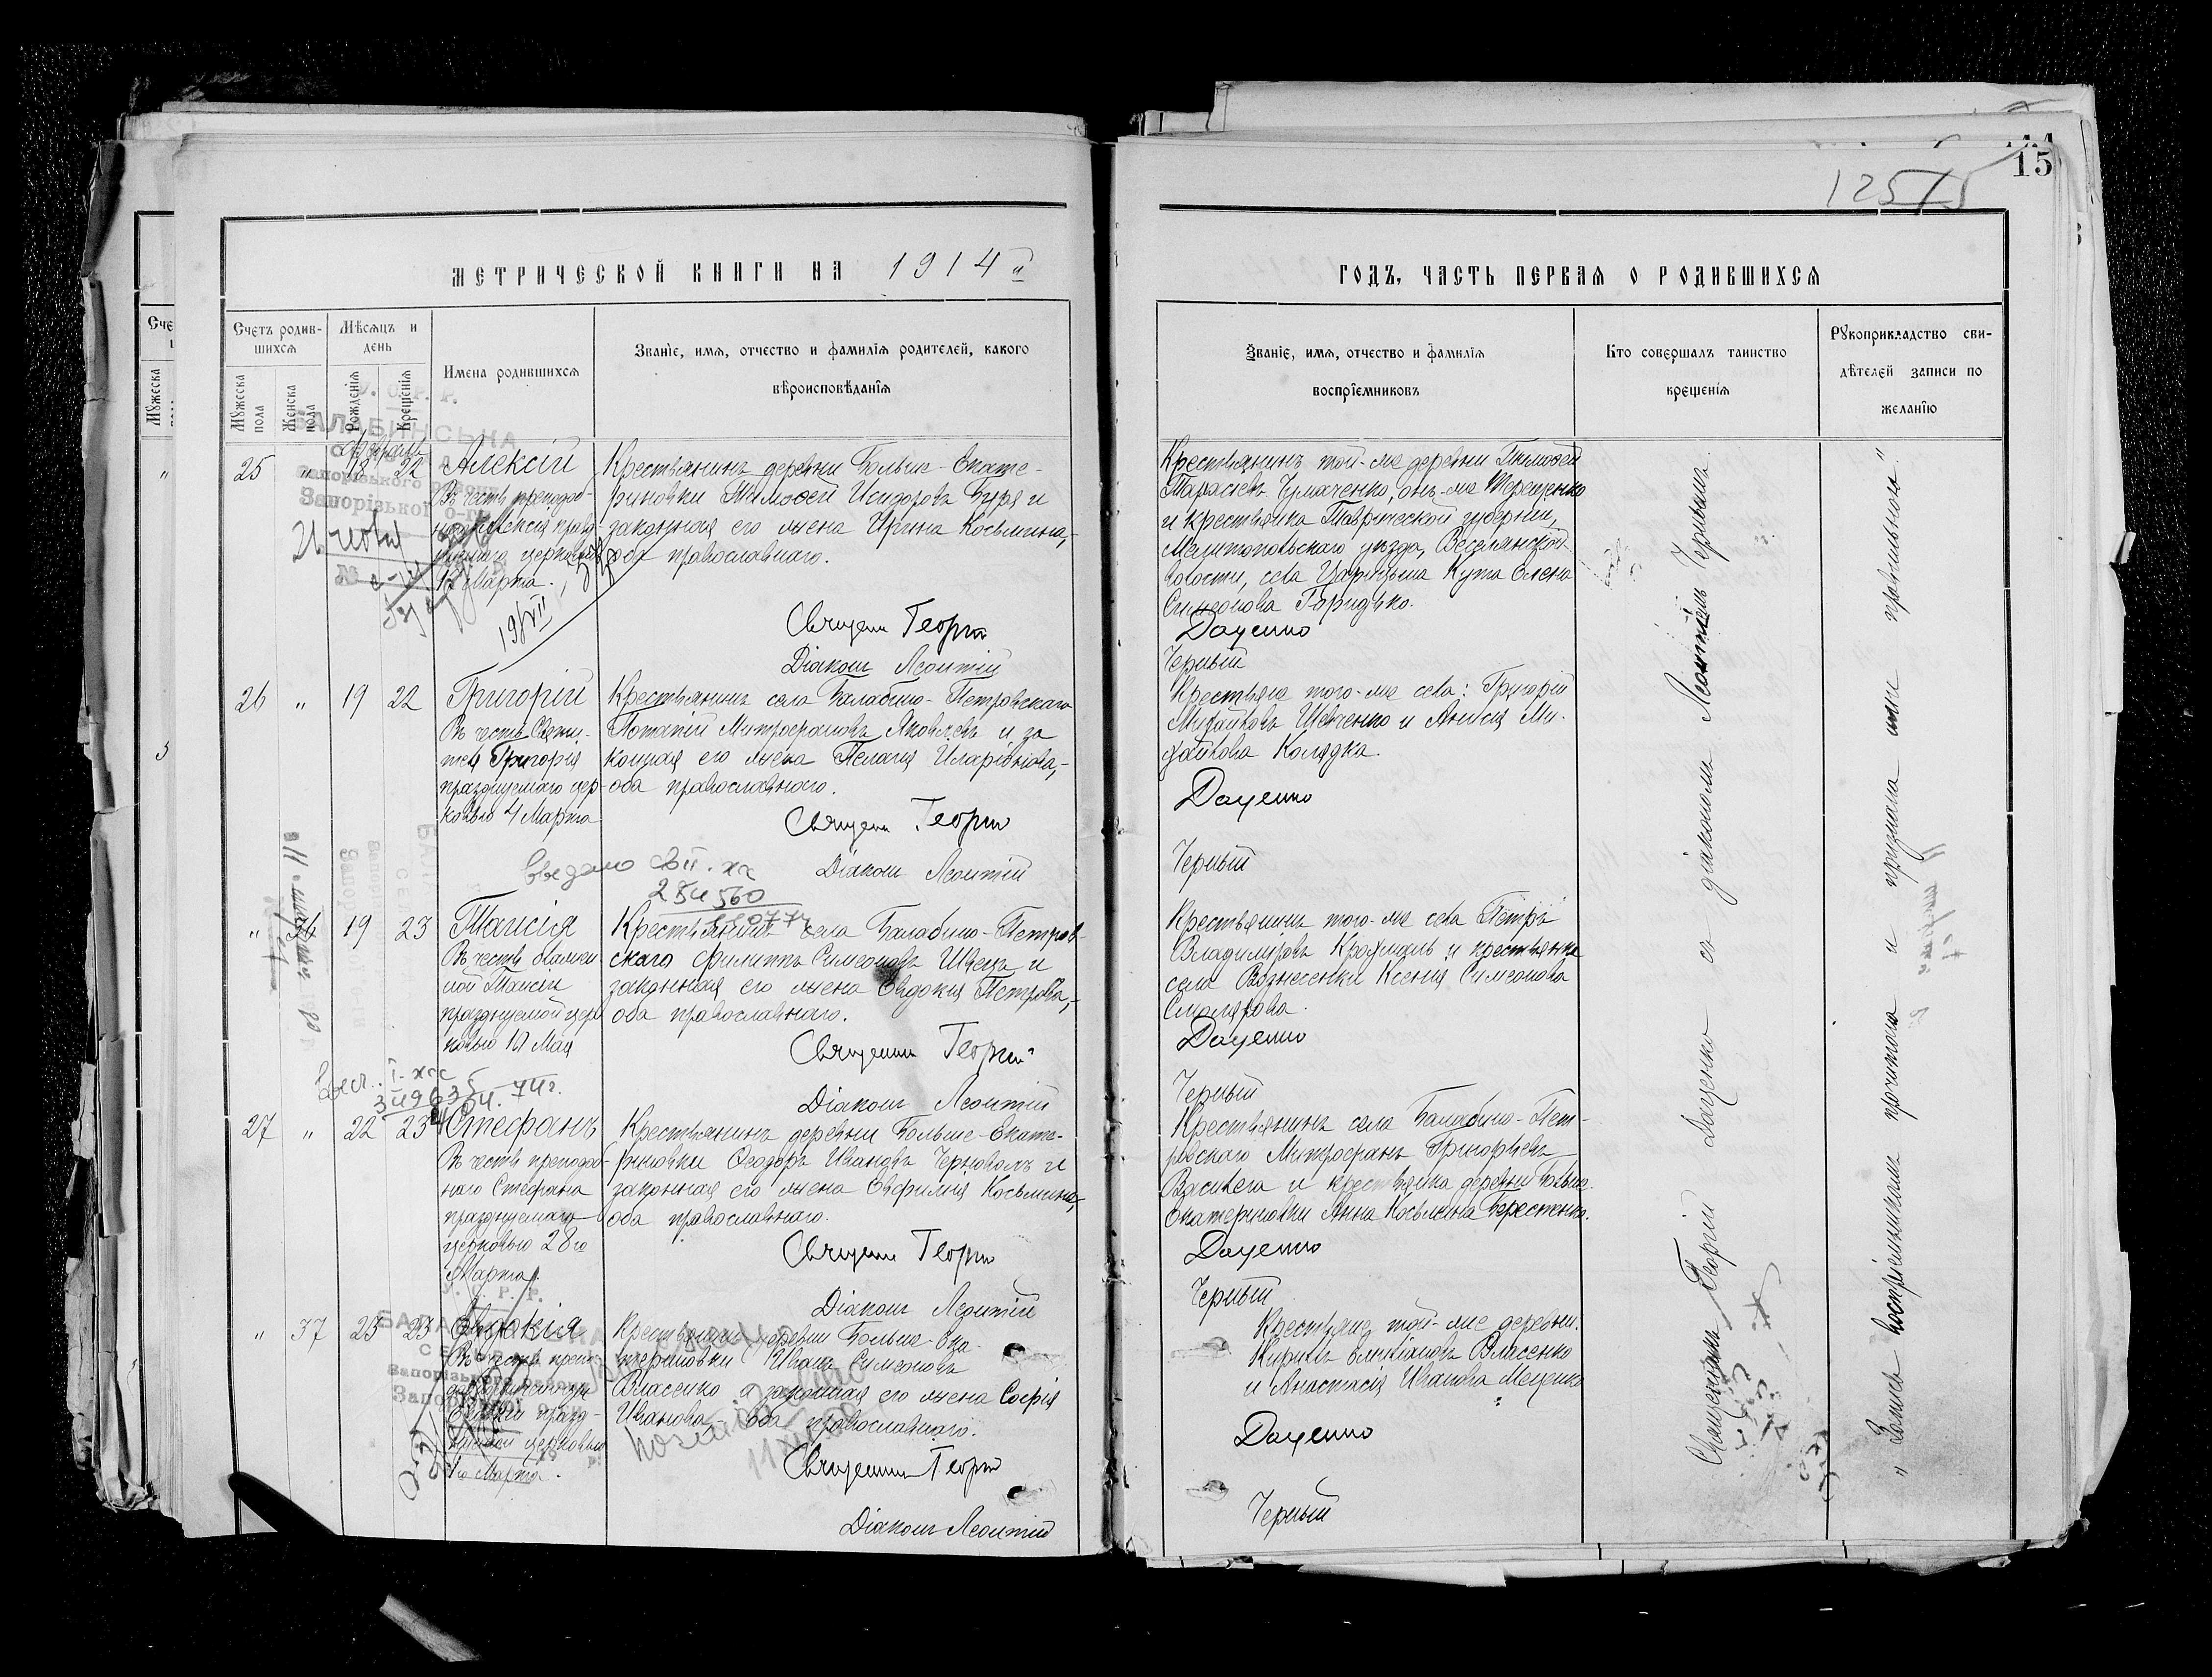 15
12575
МЕТРИЧЕСКОЙ КНИГИ НА 1914 й
ГОДЪ, ЧАСТЬ ПЕРВАЯ О РОДИВШИХСЯ
Счетъ родив-
шихся
Мѣсяцъ и
день
Мужеска
пола
Женска
пола
Рожденія
Крещенія
Имена родившихся
Званіе, имя, отчество и фамилія родителей, какого
вѣроисповѣданія
Званіе, имя, отчество и фамилія
воспріемниковъ
Кто совершалъ таинство
крещенія
Рукоприкладство сви-
дѣтелей записи по
желанію
Февраль
25 " 18 22 Алексій
Въ честь преподоб-
наго Алексія празд-
нуемаго церковью
17 Марта.
Крестьянинъ деревни Больше-Екате-
риновки Тимоѳей Исидоровъ Буря и
законная его жена Ирина Косьмина,-
оба православнаго.
Священ Георгій
Діаконъ Леонтій
Крестьянинъ той-же деревни Тимоѳей
Тарасіевъ Чумаченко, онъ-же Терещенко
и крестьянка Таврической губерніи,
Мелитопольскаго уѣзда, Веселянской
волости, села Царицына Кута Елена
Симеонова Горидько.
Даценко
Черный
26 " 19 22 Григорій
Въ честь Святи-
теля Григорія
празднуемаго цер-
ковью 4 Марта
Крестьянинъ села Балабино-Петровскаго
Потапій Митрофановъ Яковлевъ и за
конная его жена Пелагія Иларіонова,-
оба православнаго.
Священ Георгій
Діаконъ Леонтій
Крестьяне того-же села: Григорій
Михайловъ Шевченко и Анисія Ми-
хайлова Колядка.
Даценко
Черный
284560
" 36 19 23 Таисія
Въ честь блажен-
ной Таисіи
празднуемой цер-
ковью 10 Мая
Крестьянинъ села Балабино-Петров-
скаго Филиппъ Симеоновъ Швецъ и
законная его жена Евдокія Петрова,-
оба православнаго.
Священник Георгій
Діаконъ Леонтій
Крестьянинъ того-же села Петръ
Владиміровъ Крохмаль и крестьянка
села Вознесенки Ксенія Симеонова
Смолярова.
Даценко
Черный
27 " 22 23 Стефанъ
Въ честь преподоб-
наго Стефана
празднуемаго
церковью 28го
Марта.
Крестьянинъ деревни Больше-Екате-
риновки Ѳеодоръ Ивановъ Черноволъ и
законная его жена Евфимія Косьмина,
оба православнаго.
Священ Георгій
Діаконъ Леонтій
Крестьянинъ села Балабино-Пет-
ровскаго Митрофанъ Григорьевъ
Василега и крестьянка деревни Больше-
Екатериновки Анна Косьмина Берестенко.
Даценко
Черный
" 37 23 23 Евдокія
церковью
1го Марта.
Крестьянинъ деревни Больше-Ека-
териновки Иванъ Симеоновъ
Власенко и законная его жена Софія
Иванова,- оба православнаго.
Священник Георгій
Діаконъ Леонтій
Крестьяне той-же деревни:
Кириллъ Власенко
и Анастасія Иванова Меценко
Даценко
Черный
Священникъ Георгій Даценко съ діакономъ Леонтіемъ Чернымъ.
"Запись воспріемникамъ прочитана и признана ими правильною".